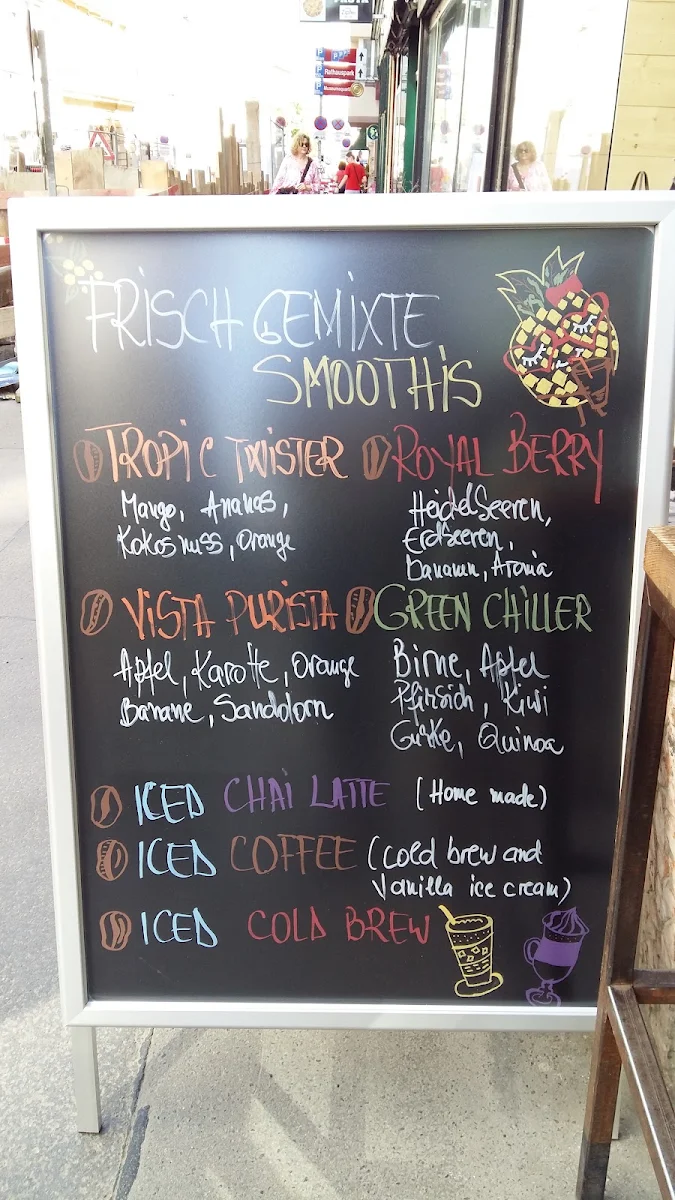 Rathauspark
FRISCH GEMIXTE
SMOOTHIS
TROPIC TWISTER
Mango, Ananas,
Kokosnuss, Orange
ROYAL BERRY
Heidelbeeren,
Erdbeeren,
Bananen, Aronia
VISTA PURISTA
Apfel, Karotte, Orange
Banane, Sanddorn
GREEN CHILLER
Birne, Apfel
Pfirsich, Kiwi
Gurke, Quinoa
ICED CHAI LATTE (Home made)
ICED COFFEE (cold brew and
Vanilla ice cream)
ICED COLD BREW